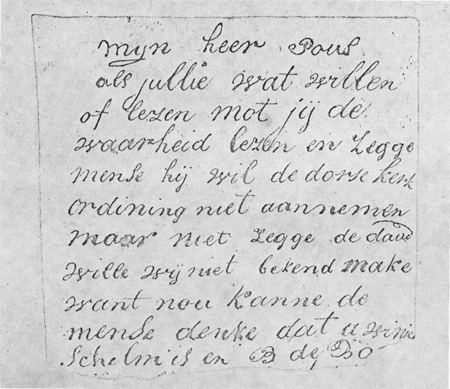 mijn heer Pous
als jullie wat willen
of lezen mot jij de
waarheid lezen en Zegge
mense hij wil de dorse kerk
ordining niet aannemen
maar niet Zegge de
wille wij niet bekend make
want nou kanne de
mense denke dat u
Schelm is en B de Bo